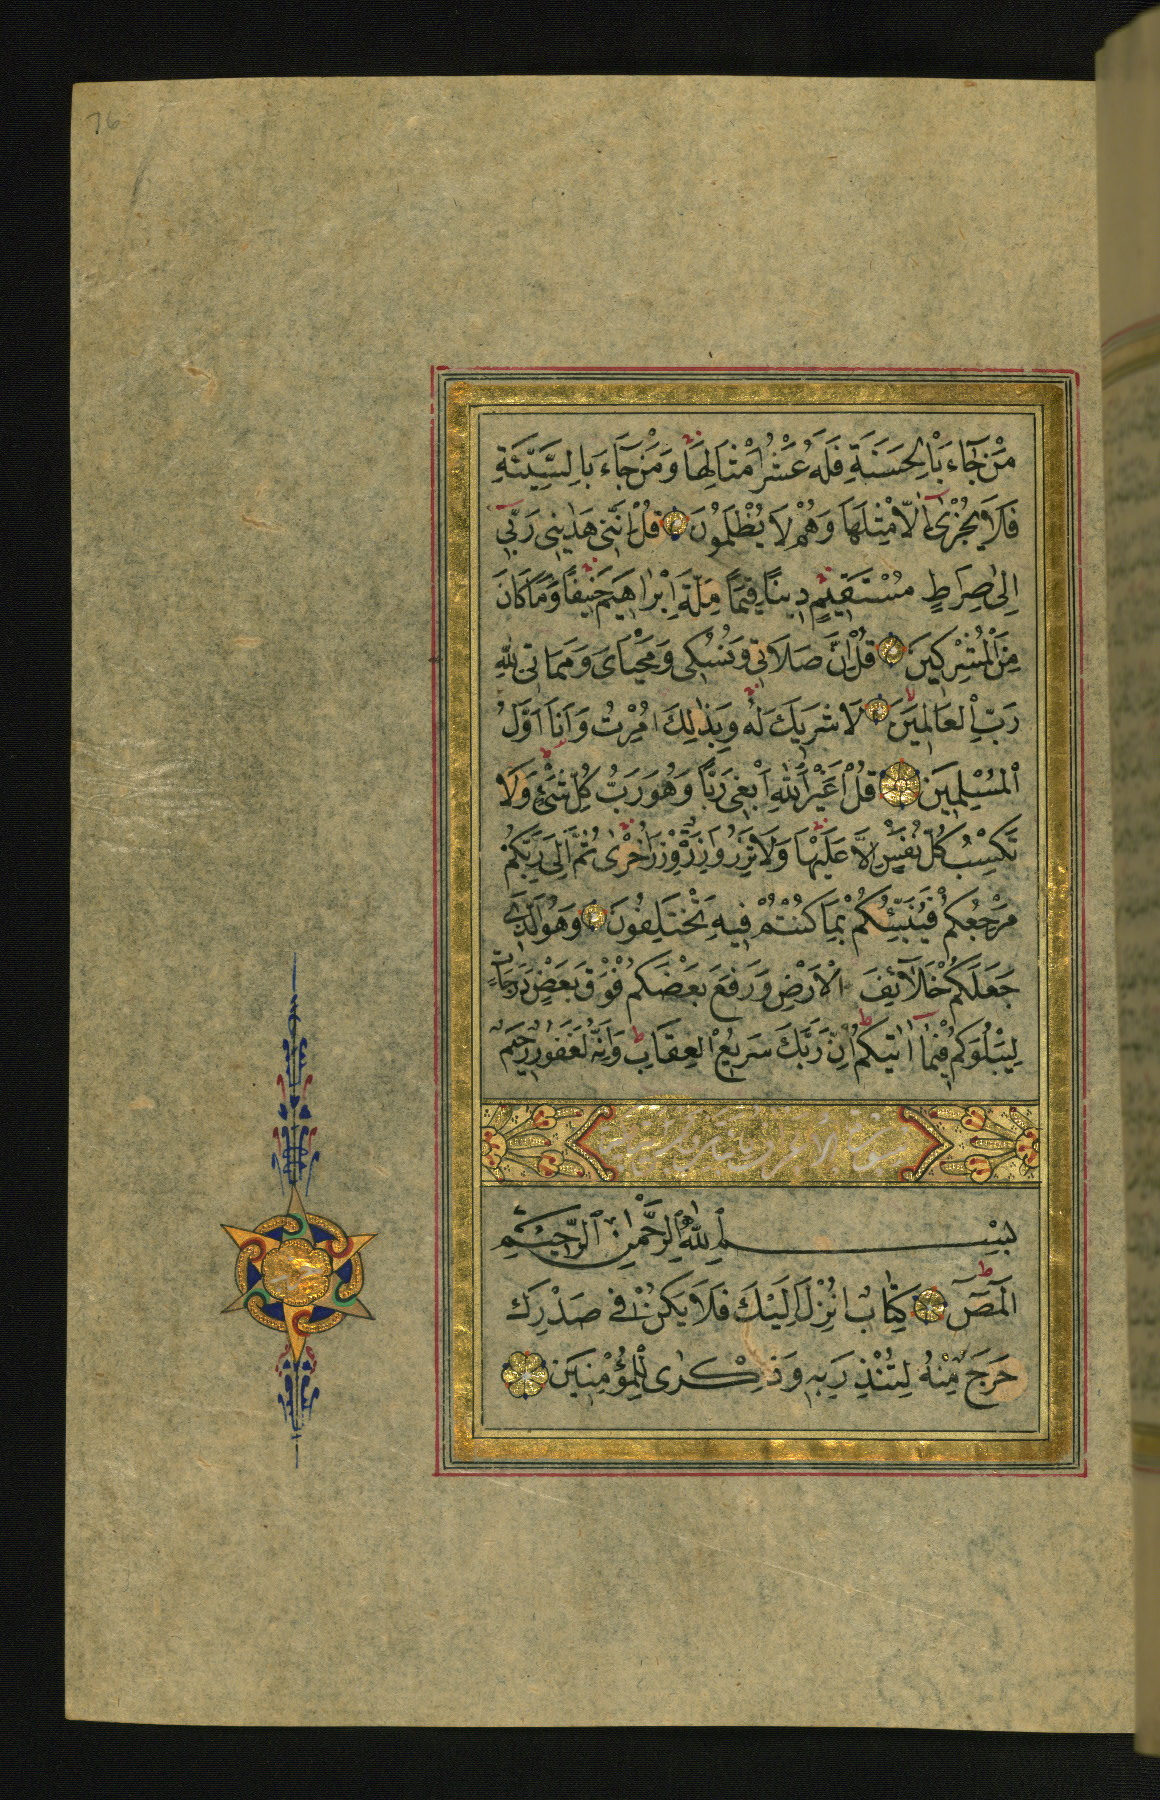 76
مَنْ جَاءَ بِالْحَسَنَةِ فَلَهُ عَشْرُ اَمْثَالِهَا وَمَنْ جَاءَ بِالسَّيِّئَةِ
فَلَا يُجْزٰى اِلَّا مِثْلَهَا وَهُمْ لَا يُظْلَمُونَ قُلْ اِنَّنِى هَدٰينِى رَبِّى
اِلٰى صِرَاطٍ مُسْتَقِيمٍ دِينًا قِيَمًا مِلَّةَ اِبْرَاهِيمَ حَنِيفًا وَمَا كَانَ
مِنَ الْمُشْرِكِينَ قُلْ اِنَّ صَلَاتِى وَنُسُكِى وَمَحْيَاىَ وَمَمَاتِى لِلّٰهِ
رَبِّ الْعَالَمِينَ لَا شَرِيكَ لَهُ وَبِذٰلِكَ اُمِرْتُ وَاَنَا اَوَّلُ
الْمُسْلِمِينَ قُلْ اَغَيْرَ اللّٰهِ اَبْغِى رَبًّا وَهُوَ رَبُّ كُلِّ شَىْءٍ وَلَا
تَكْسِبُ كُلُّ نَفْسٍ اِلَّا عَلَيْهَا وَلَا تَزِرُ وَازِرَةٌ وِزْرَ اُخْرٰى ثُمَّ اِلٰى رَبِّكُمْ
مَرْجِعُكُمْ فَيُنَبِّئُكُمْ بِمَا كُنْتُمْ فِيهِ تَخْتَلِفُونَ وَهُوَ الَّذِى
جَعَلَكُمْ خَلَائِفَ الْاَرْضِ وَرَفَعَ بَعْضَكُمْ فَوْقَ بَعْضٍ دَرَجَاتٍ
لِيَبْلُوَكُمْ فِيمَا اٰتٰيكُمْ اِنَّ رَبَّكَ سَرِيعُ الْعِقَابِ وَاِنَّهُ لَغَفُورٌ رَحِيمٌ
سورة الاعراف مائتان وست
بِسْمِ اللّٰهِ الرَّحْمٰنِ الرَّحِيمِ
الٓمٓصٓ كِتَابٌ اُنْزِلَ اِلَيْكَ فَلَا يَكُنْ فِى صَدْرِكَ
حَرَجٌ مِنْهُ لِتُنْذِرَ بِهِ وَذِكْرٰى لِلْمُؤْمِنِينَ